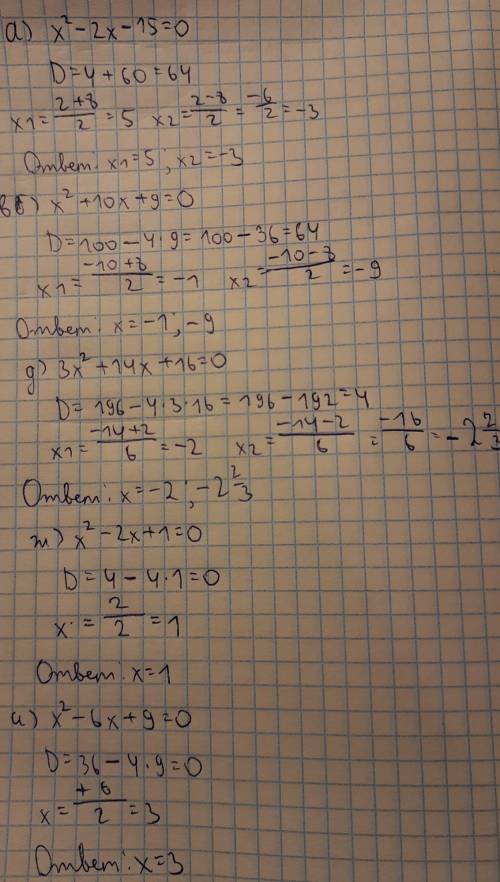 а) x²-2x-15=0
D=4+60=64
x1=(2+8)/2=5 x2=(2-8)/2=-6/2=-3
Ответ: x1=5; x2=-3
вб) x²+10x+9=0
D=100-4·9=100-36=64
x1=(-10+8)/2=-1 x2=(-10-8)/2=-9
Ответ: x=-1; -9
д) 3x²+14x+16=0
D=196-4·3·16=196-192=4
x1=(-14+2)/6=-2 x2=(-14-2)/6=-16/6=-2 2/3
Ответ: x=-2; -2 2/3
ж) x²-2x+1=0
D=4-4·1=0
x=2/2=1
Ответ: x=1
и) x²-6x+9=0
D=36-4·9=0
x=+6/2=3
Ответ: x=3